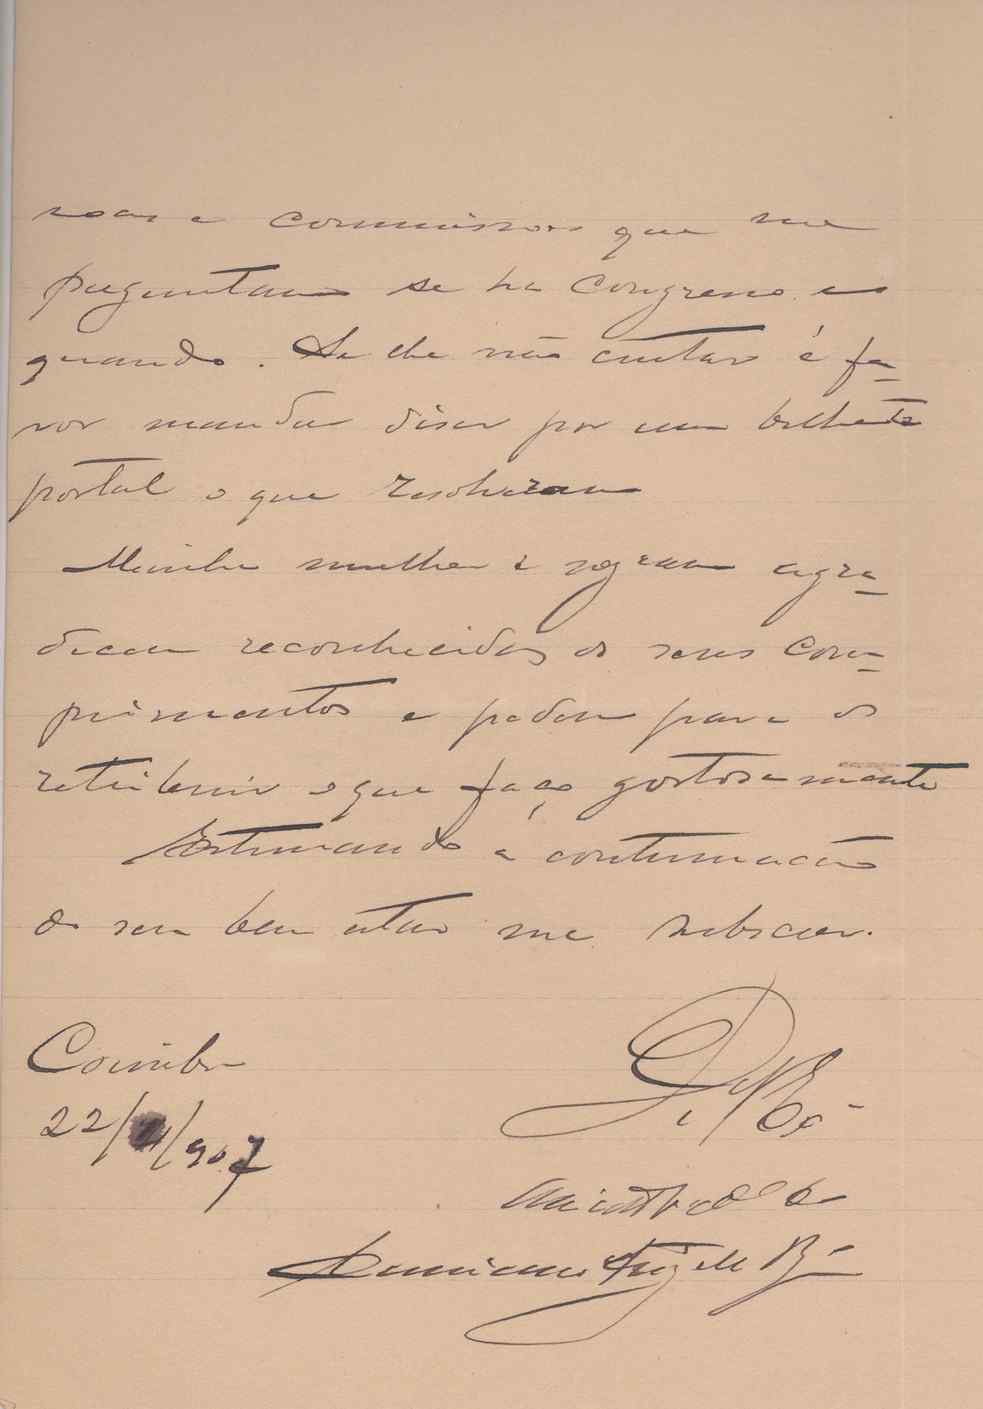 soas e commissões que me
preguntam se ha Congresso e
quando. Se lhe não custar é fa-
vor mandar diser por um bilhete
postal o que resolveram
Minha mulher e sogra agra-
decem reconhecidas os seus com-
primentos e pedem para os
retribuir o que faço gostosamente
Estimando a continuação
do seu bem estar me subscrevo.
Coimbra
22/11/907
De V. Exª